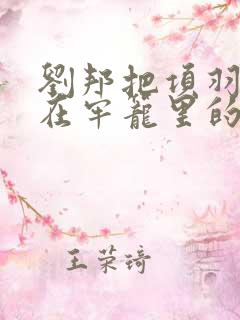 劉邦把項羽
在牢籠里的
王荣琦